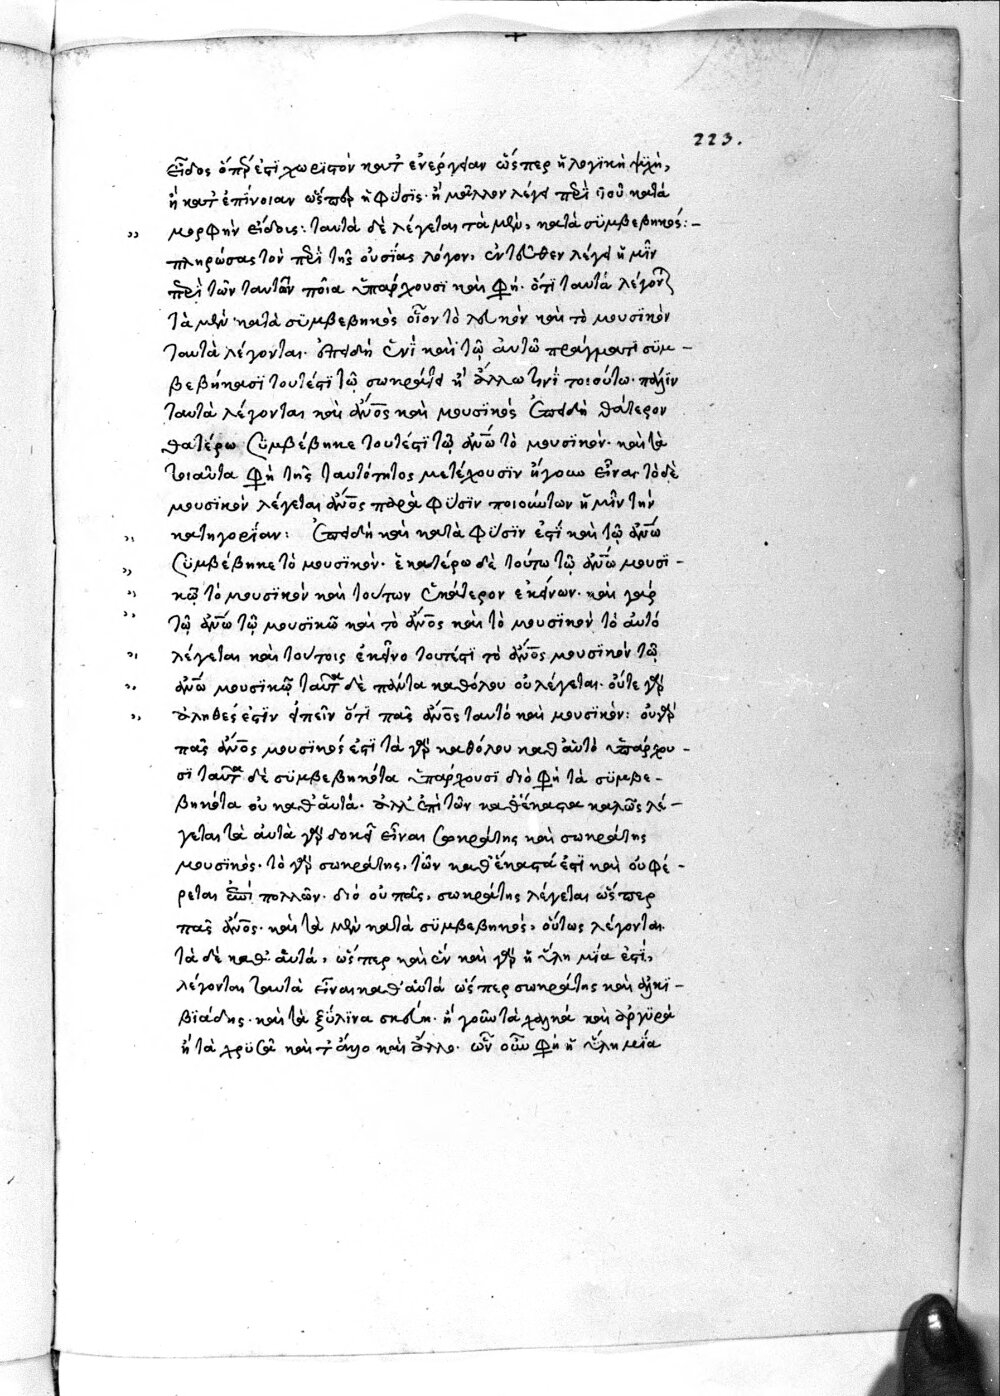 223.
εἶδος ὅπερ ἐστὶ χωριστὸν κατ' ἐνέργειαν ὥσπερ ἡ λογϊκὴ ψϋχὴ,
ἢ κατ' ἐπίνοιαν ὥσπερ ἡ φύσϊς· ἢ μᾶλλον λέγει περὶ τοῦ κατὰ
μορφὴν εἴδους: ταυτὰ δὲ λέγεται τὰ μὲν, κατὰ σϋμβεβηκός:–
πληρώσας τὸν περὶ τῆς οὐσίας λόγον, ἐντεῦθεν λέγει ἡμῖν
περὶ τῶν ταυτῶν ποῖα ὑπάρχουσϊ καὶ φη· ὅτϊ ταυτὰ λέγονται
τὰ μὲν κατὰ σϋμβεβηκὸς οἷον τὸ λευκὸν καὶ τὸ μουσϊκὸν
ταυτὰ λέγονται. ἐπειδὴ ἑνὶ καὶ τῶ αὐτῶ πράγματι σϋμ–
βεβήκασϊ τουτέστι τῶ σωκράτει ἢ ἄλλω τινὶ τοιούτω· πάλϊν
ταυτὰ λέγονται καὶ ἄνος καὶ μουσϊκὸς ἐπειδὴ θάτερον
θατέρω σϋμβέβηκε τουτέστι τῶ ἀνω τὸ μουσϊκὸν· καὶ τὰ
τοιαῦτα φη τῆς ταυτότητος μετέχουσϊν ἤγουν εἶναι τὸ δὲ
μουσϊκὸν λέγεται ἄνος παρὰ φύσϊν ποιούντων ἡμῖν τὴν
κατηγορίαν: ἐπειδὴ καὶ κατὰ φύσϊν ἐστὶ καὶ τῶ ἀνω
σϋμβέβηκε τὸ μουσϊκὸν. ἑκατέρω δὲ τούτω τῶ ἀνω μουσϊ–
κῶ τὸ μουσϊκὸν καὶ τούτων ἑκάτερον ἐκείνων· καὶ γὰρ
τῶ ἀνω τῶ μουσϊκῶ καὶ τὸ ἄνος καὶ τὸ μουσϊκὸν τὸ αὐτὸ
λέγεται καὶ τούτοις ἐκεῖνο τουτέστι τὸ ἄνος μουσϊκὸν τῶ
ἀνω μουσϊκῶ ταῦτα δὲ πάντα καθόλου οὐ λέγεται. οὔτε γὰρ
ἀληθές ἐστϊν εἰπεῖν ὅτϊ πᾶς ἄνος ταυτὸ καὶ μουσϊκὸν: οὐ γὰρ
πᾶς ἄνος μουσϊκός ἐστι τὰ γὰρ καθόλου καθ' αὑτὸ ὑπάρχου–
σϊ ταῦτα δὲ σϋμβεβηκότα ὑπάρχουσϊ διὸ φη τὰ σϋμβε–
βηκότα οὐ καθ' αὑτά. ἀλλ' ἐπὶ τῶν καθέκαστα καλῶς λέ–
γεται τὰ αὐτὰ γὰρ δοκεῖ εἶναι σωκράτης καὶ σωκράτης
μουσϊκὸς. τὸ γὰρ σωκράτης, τῶν καθ' ἕκαστά ἐστι καὶ οὐ φέ–
ρεται ἐπὶ πολλῶν. διὸ οὐ πᾶς, σωκράτης λέγεται ὥσπερ
πᾶς ἄνος. καὶ τὰ μὲν κατὰ σϋμβεβηκὸς, οὕτως λέγονται.
τὰ δὲ καθ' αὑτὰ, ὥσπερ καὶ ἓν καὶ γὰρ ἡ ὕλη μία ἐστὶ,
λέγονται ταυτὰ εἶναι καθ' αὑτά ὥσπερ σωκράτης καὶ ἀλκϊ–
βϊάδης. καὶ τὰ ξύλϊνα σκεύη. ἤγουν τὰ χαλκᾶ καὶ ἀργϋρᾶ
ἢ τὰ χρϋσᾶ καὶ ἄλλο. ὧν οὖν φη ἡ ὕλη μία